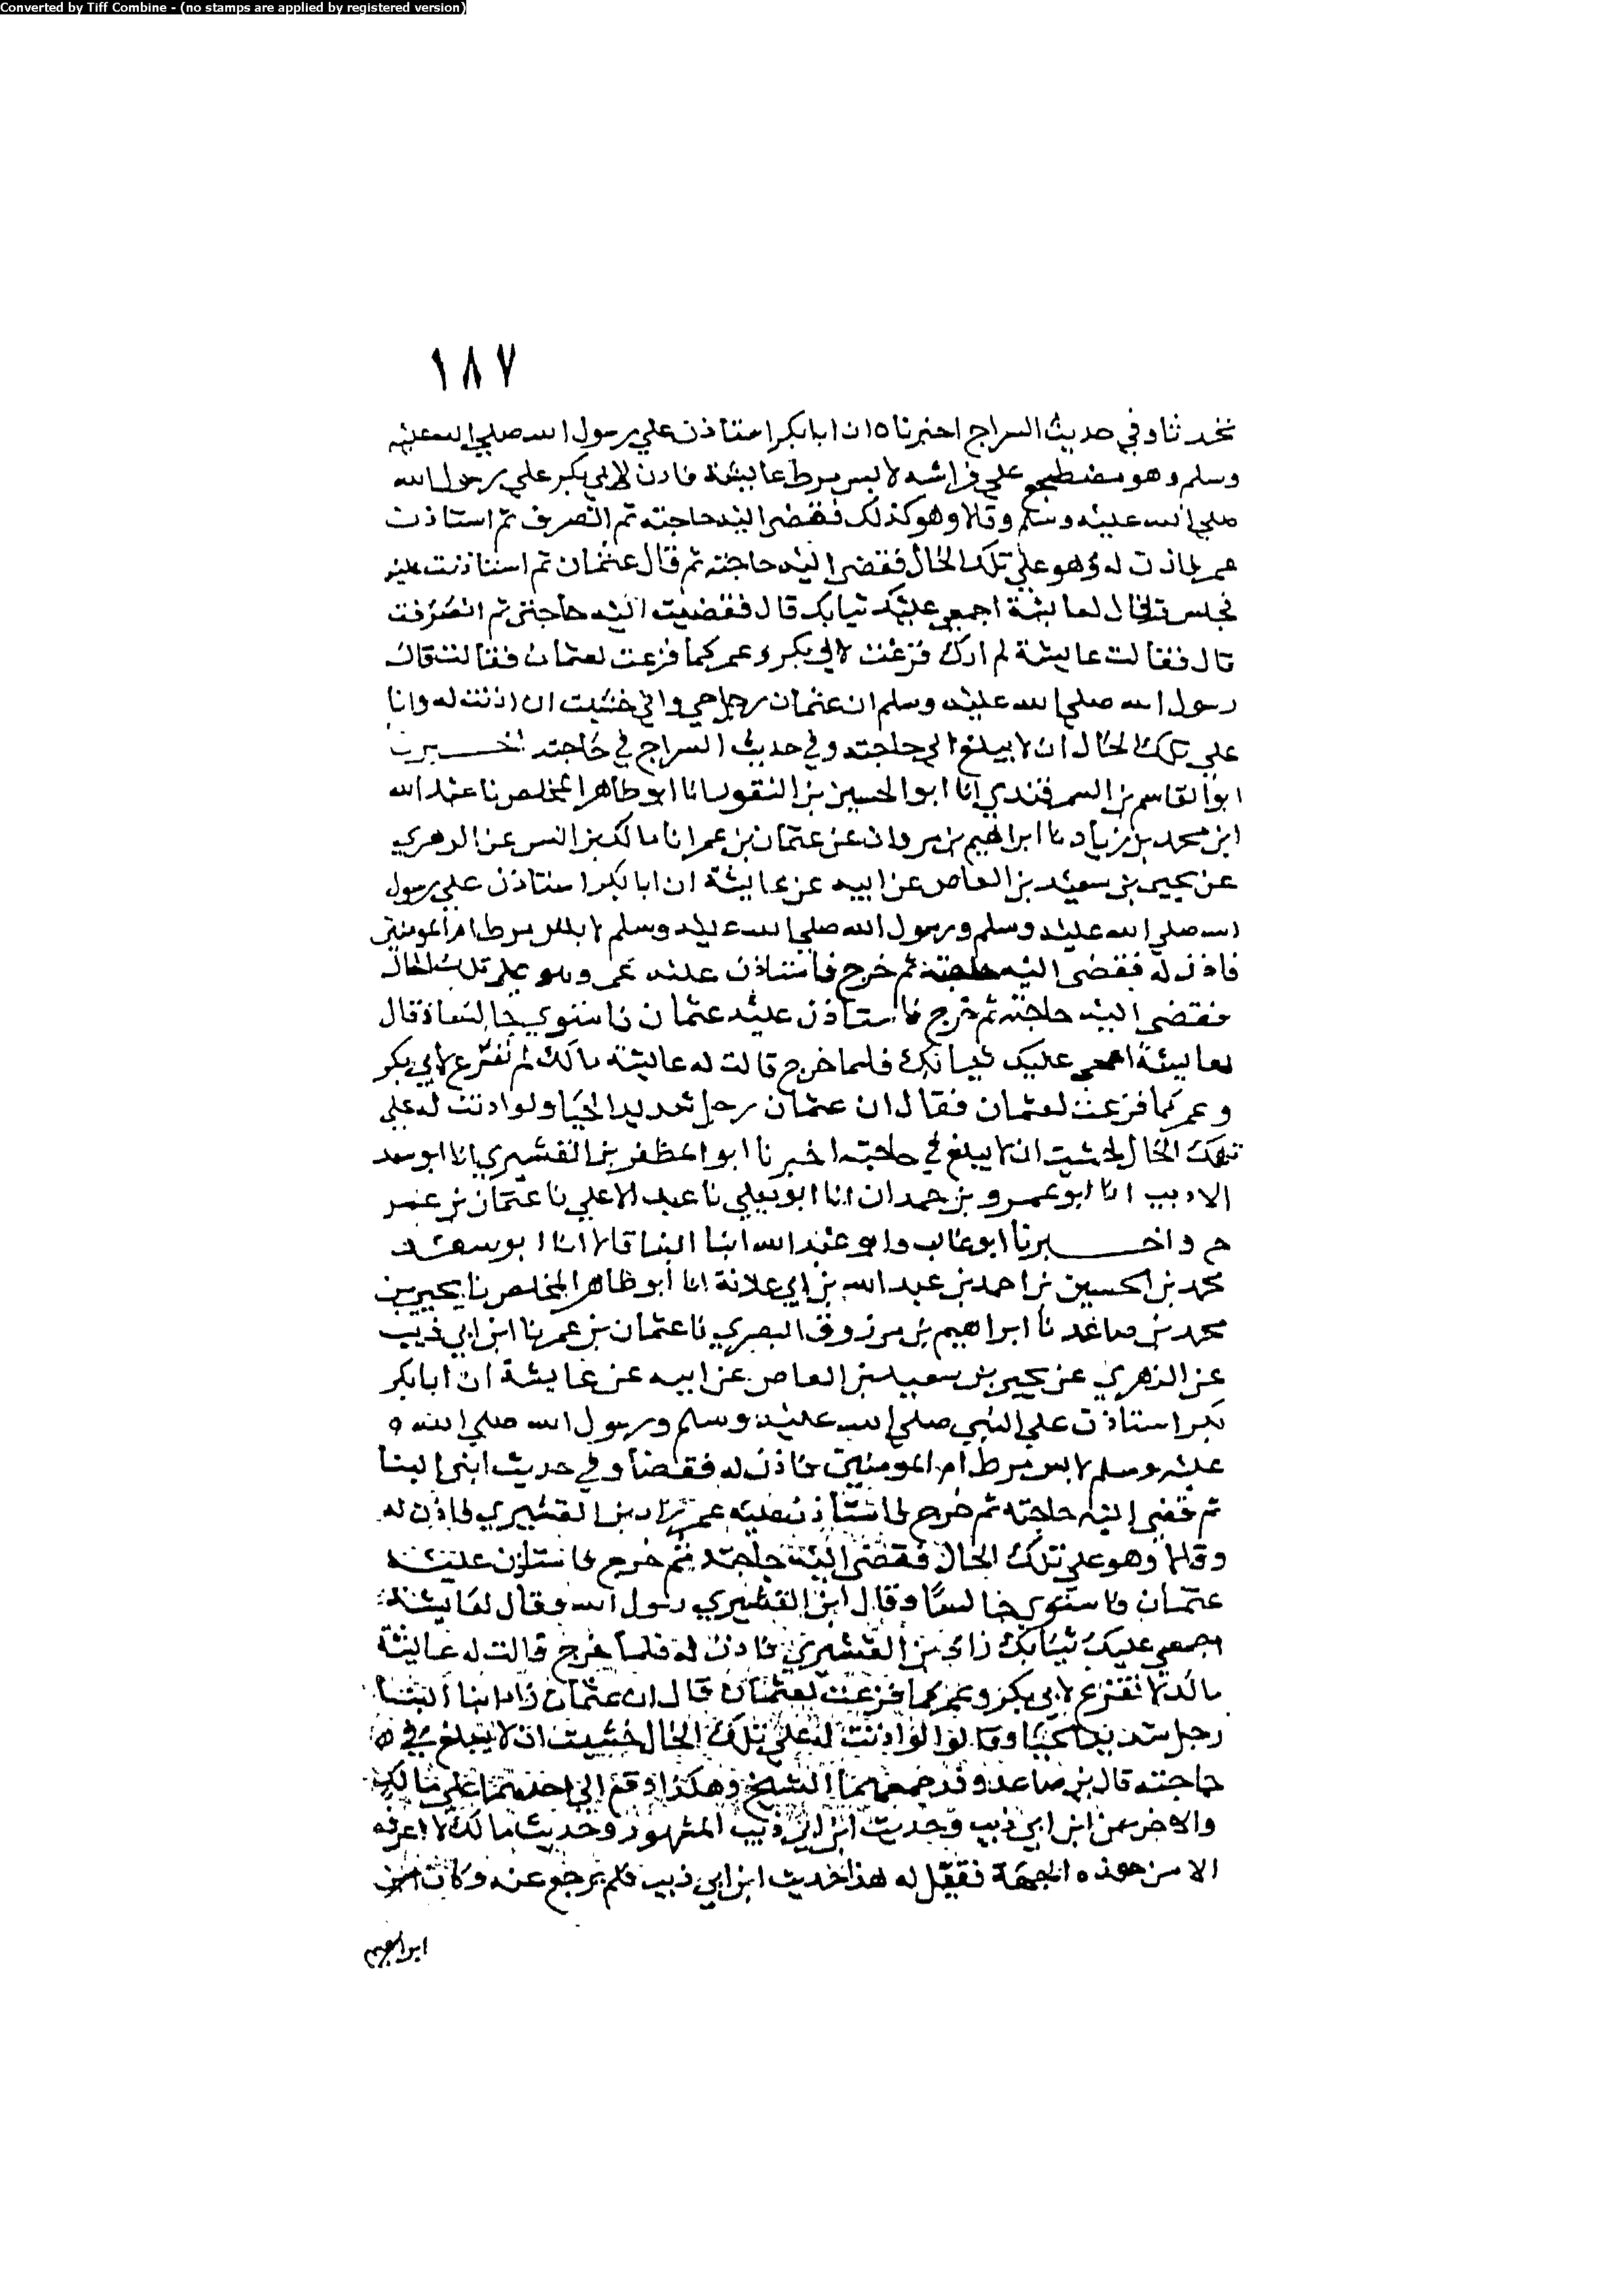 Converted by Tiff Combine - (no stamps are applied by registered version)
١٨٧
حدثنا وفي حديث السراج اخبرناه ان ابا بكر استاذن علي رسول الله صلي الله عليه
وسلم وهو مضطجع علي فراشه لابس مرط عايشة فاذن لابي بكر علي رسول الله
صلي الله عليه وسلم وقالا وهو كذلك فقضى اليه حاجته ثم انصرف ثم استاذن
عمر فاذن له وهو علي تلك الحال فقضى اليه حاجته ثم قال عثمان ثم استاذنت عليه
فجلس وقال لعايشة اجمعي عليك ثيابك قال فقضيت اليه حاجتي ثم انصرفت
قال فقالت عايشة لم ارك فزعت لابي بكر وعمر كما فزعت لعثمان فقالت قال
رسول الله صلي الله عليه وسلم ان عثمان رجل حي واني خشيت ان اذنت له وانا
علي تلك الحال ان لا يبلغ الي حاجته وفي حديث السراج في حاجته اخبرنا
ابو القاسم بن السمرقندي انا ابو الحسين بن النقور انا ابو طاهر المخلص نا عبد الله
ابن محمد بن زياد نا ابراهيم بن مروان عن عثمان بن عمر انا مالك بن انس عن الزهري
عن يحيى بن سعيد بن العاص عن ابيه عن عايشة ان ابا بكر استاذن علي رسول
الله صلي الله عليه وسلم ورسول الله صلي الله عليه وسلم لابس مرط ام المومنين
فاذن له فقضى اليه حاجته ثم خرج فاستاذن عليه عمر وهو علي تلك الحال
فقضى اليه حاجته ثم خرج فاستاذن عليه عثمان فاستوي جالسا وقال
لعايشة اجمعي عليك ثيابك فلما خرج قالت له عايشة مالك لم تفزع لابي بكر
وعمر كما فزعت لعثمان فقال ان عثمان رجل شديد الحيا ولو اذنت له علي
تلك الحال لخشيت ان لا يبلغ في حاجته اخبرنا ابو المظفر بن القشيري انا ابو سعد
الاديب انا ابو عمرو بن حمدان انا ابو يعلي نا عبد الاعلي نا عثمان بن عمر
ح واخبرنا ابو غالب وابو عبد الله ابنا البنا قالا انا ابو سعد
محمد بن الحسين بن احمد بن عبد الله بن ابي علانة انا ابو طاهر المخلص نا يحيى بن
محمد بن صاعد نا ابراهيم بن مرزوق البصري نا عثمان بن عمر نا ابن ابي ذيب
عن الزهري عن يحيى بن سعيد بن العاص عن ابيه عن عايشة ان ابا بكر
بكر استاذن علي النبي صلي الله عليه وسلم ورسول الله صلي الله ه
عليه وسلم لابس مرط ام المومنين فاذن له فقضا وفي حديث ابني البنا
ثم قضى اليه حاجته ثم خرج فاستاذن عليه عمر زاد بن القشيري فاذن له
وقالا وهو علي تلك الحال فقضى اليه حاجته ثم خرج فاستاذن عليه
عثمان فاستوي جالسا وقال ابن القشيري رسول الله وقال لعايشة
اجمعي عليك ثيابك زاد بن القشيري فاذن له فلما خرج قالت له عايشة
مالك لا تفزع لابي بكر وعمر كما فزعت لعثمان قال ان عثمان زاد ابنا البنا
رجل شديد الحيا وقالوا لو اذنت له علي تلك الحال خشيت ان لا يبلغ في ه
حاجته قال بن صاعد وقد جمعهما الشيخ وهكذا وقع الي احدهما علي مالك
والاخر عن ابن ابي ذيب وحديث ابن ابي ذيب المشهور وحديث مالك لا اعرفه
الا من هذه الجهة فقيل له هذا حديث ابن ابي ذيب فلم يرجع عنه وكان
ابراهيم